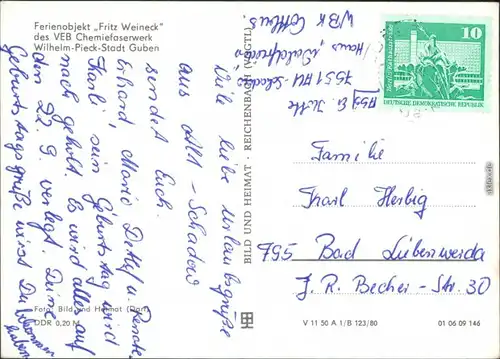 Ferienobjekt „Fritz Weineck"
des VEB Chemiefaserwerk
Wilhelm-Pieck-Stadt Guben
Viele liebe Urlaubsgrüße
aus Alt-Schadow
sendet Euch
Erhard, Marie Detlef u. Renate.
Karli sein Geburtstag wird
nach geholt. Es wird alles auf
den 22. 9. verlegt. Deine
Geburtstagsgrüße wirst Du
haben
Foto: Bild und Heimat (Darr)
DDR 0,20 M
BILD UND HEIMAT · REICHENBACH (VOGTL)
7551 Alt-Schadow
WBK Cottbus
10
DEUTSCHE DEMOKRATISCHE REPUBLIK
Familie
Karl Herbig
795 Bad Liebenwerda
J. R. Becher-Str. 30
V 11 50 A 1/B 123/80
01 06 09 146